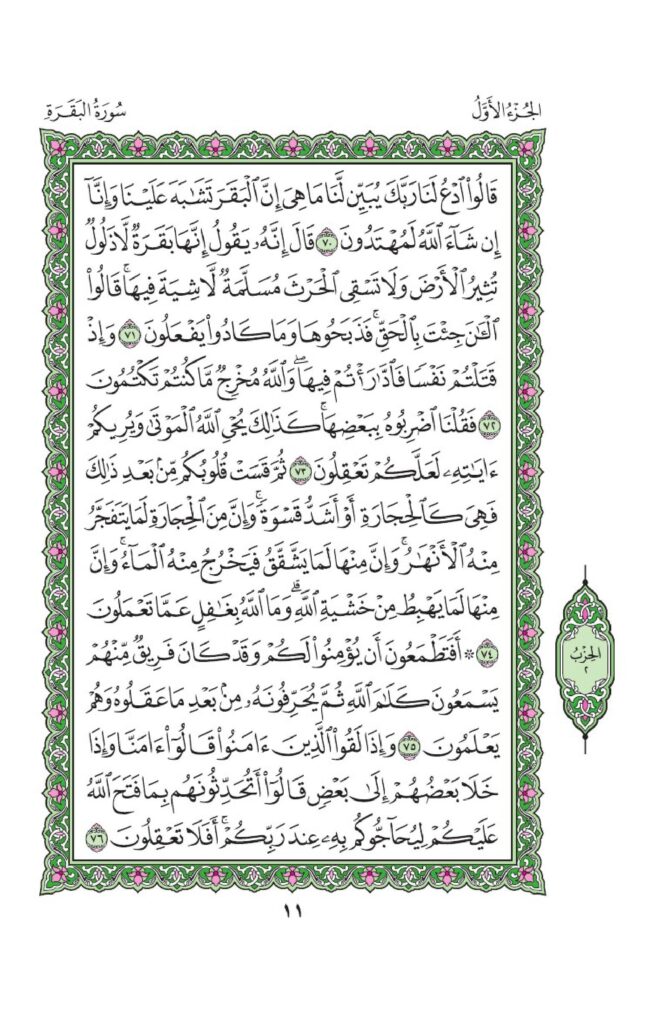 الجُزْءُ الأَوَّلُ
سُورَةُ البَقَرَةِ
قَالُوا۟ ٱدْعُ لَنَا رَبَّكَ يُبَيِّن لَّنَا مَا هِىَ إِنَّ ٱلْبَقَرَ تَشَٰبَهَ عَلَيْنَا وَإِنَّآ
إِن شَآءَ ٱللَّهُ لَمُهْتَدُونَ ٧٠ قَالَ إِنَّهُۥ يَقُولُ إِنَّهَا بَقَرَةٌ لَّا ذَلُولٌ
تُثِيرُ ٱلْأَرْضَ وَلَا تَسْقِى ٱلْحَرْثَ مُسَلَّمَةٌ لَّا شِيَةَ فِيهَا ۚ قَالُوا۟
ٱلْـَٰٔنَ جِئْتَ بِٱلْحَقِّ ۚ فَذَبَحُوهَا وَمَا كَادُوا۟ يَفْعَلُونَ ٧١ وَإِذْ
قَتَلْتُمْ نَفْسًا فَٱدَّٰرَْٰٔتُمْ فِيهَا ۖ وَٱللَّهُ مُخْرِجٌ مَّا كُنتُمْ تَكْتُمُونَ
٧٢ فَقُلْنَا ٱضْرِبُوهُ بِبَعْضِهَا ۚ كَذَٰلِكَ يُحْىِ ٱللَّهُ ٱلْمَوْتَىٰ وَيُرِيكُمْ
ءَايَٰتِهِۦ لَعَلَّكُمْ تَعْقِلُونَ ٧٣ ثُمَّ قَسَتْ قُلُوبُكُم مِّنۢ بَعْدِ ذَٰلِكَ
فَهِىَ كَٱلْحِجَارَةِ أَوْ أَشَدُّ قَسْوَةً ۚ وَإِنَّ مِنَ ٱلْحِجَارَةِ لَمَا يَتَفَجَّرُ
مِنْهُ ٱلْأَنْهَٰرُ ۚ وَإِنَّ مِنْهَا لَمَا يَشَّقَّقُ فَيَخْرُجُ مِنْهُ ٱلْمَآءُ ۚ وَإِنَّ
مِنْهَا لَمَا يَهْبِطُ مِنْ خَشْيَةِ ٱللَّهِ ۗ وَمَا ٱللَّهُ بِغَٰفِلٍ عَمَّا تَعْمَلُونَ
٧٤ ۞ أَفَتَطْمَعُونَ أَن يُؤْمِنُوا۟ لَكُمْ وَقَدْ كَانَ فَرِيقٌ مِّنْهُمْ
يَسْمَعُونَ كَلَٰمَ ٱللَّهِ ثُمَّ يُحَرِّفُونَهُۥ مِنۢ بَعْدِ مَا عَقَلُوهُ وَهُمْ
يَعْلَمُونَ ٧٥ وَإِذَا لَقُوا۟ ٱلَّذِينَ ءَامَنُوا۟ قَالُوٓا۟ ءَامَنَّا وَإِذَا
خَلَا بَعْضُهُمْ إِلَىٰ بَعْضٍ قَالُوٓا۟ أَتُحَدِّثُونَهُم بِمَا فَتَحَ ٱللَّهُ
عَلَيْكُمْ لِيُحَآجُّوكُم بِهِۦ عِندَ رَبِّكُمْ ۚ أَفَلَا تَعْقِلُونَ ٧٦
الحِزْبُ
٢
١١